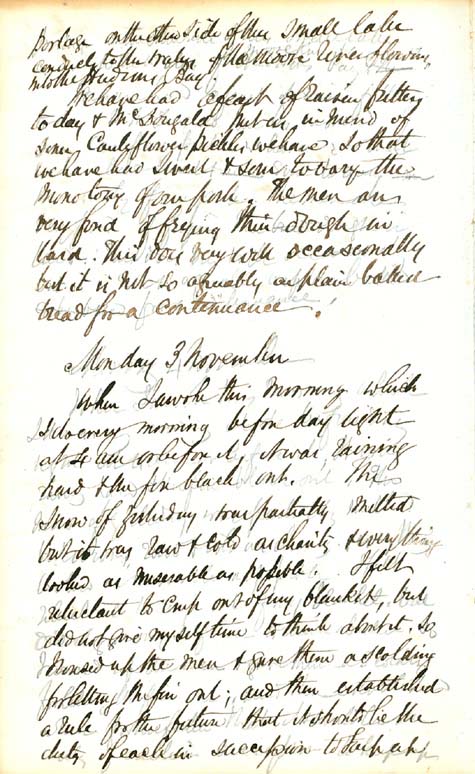 Portage on the other side of this small lake
conducts to the waters of the Moose River flowing
into the Hudsons Bay.
We have had a feast of raisin fritters
to day & McDougald put us in mind of
some Cauliflower Pickles we have so that
we have had sweet & sour to vary the
monotony of our pork. The men are
very fond of frying their dough in
lard. This does very well occasionally
but it is not so agreeably as plain baked
bread for a continuance.
Monday 3 November
When I awoke this morning which
I do every morning before day light
at 4 am or before it, it was raining
hard & the fire black out. The
snow of yesterday was partially melted
but it was raw & cold as charity & everything
looked as miserable as possible. I felt
reluctant to creep out of my blankets, but
did not give myself time to think about it. So
I roused up the men & gave them a scolding
for letting the fire out; and then established
a rule for the future that it should be the
duty of each in succession to keep up